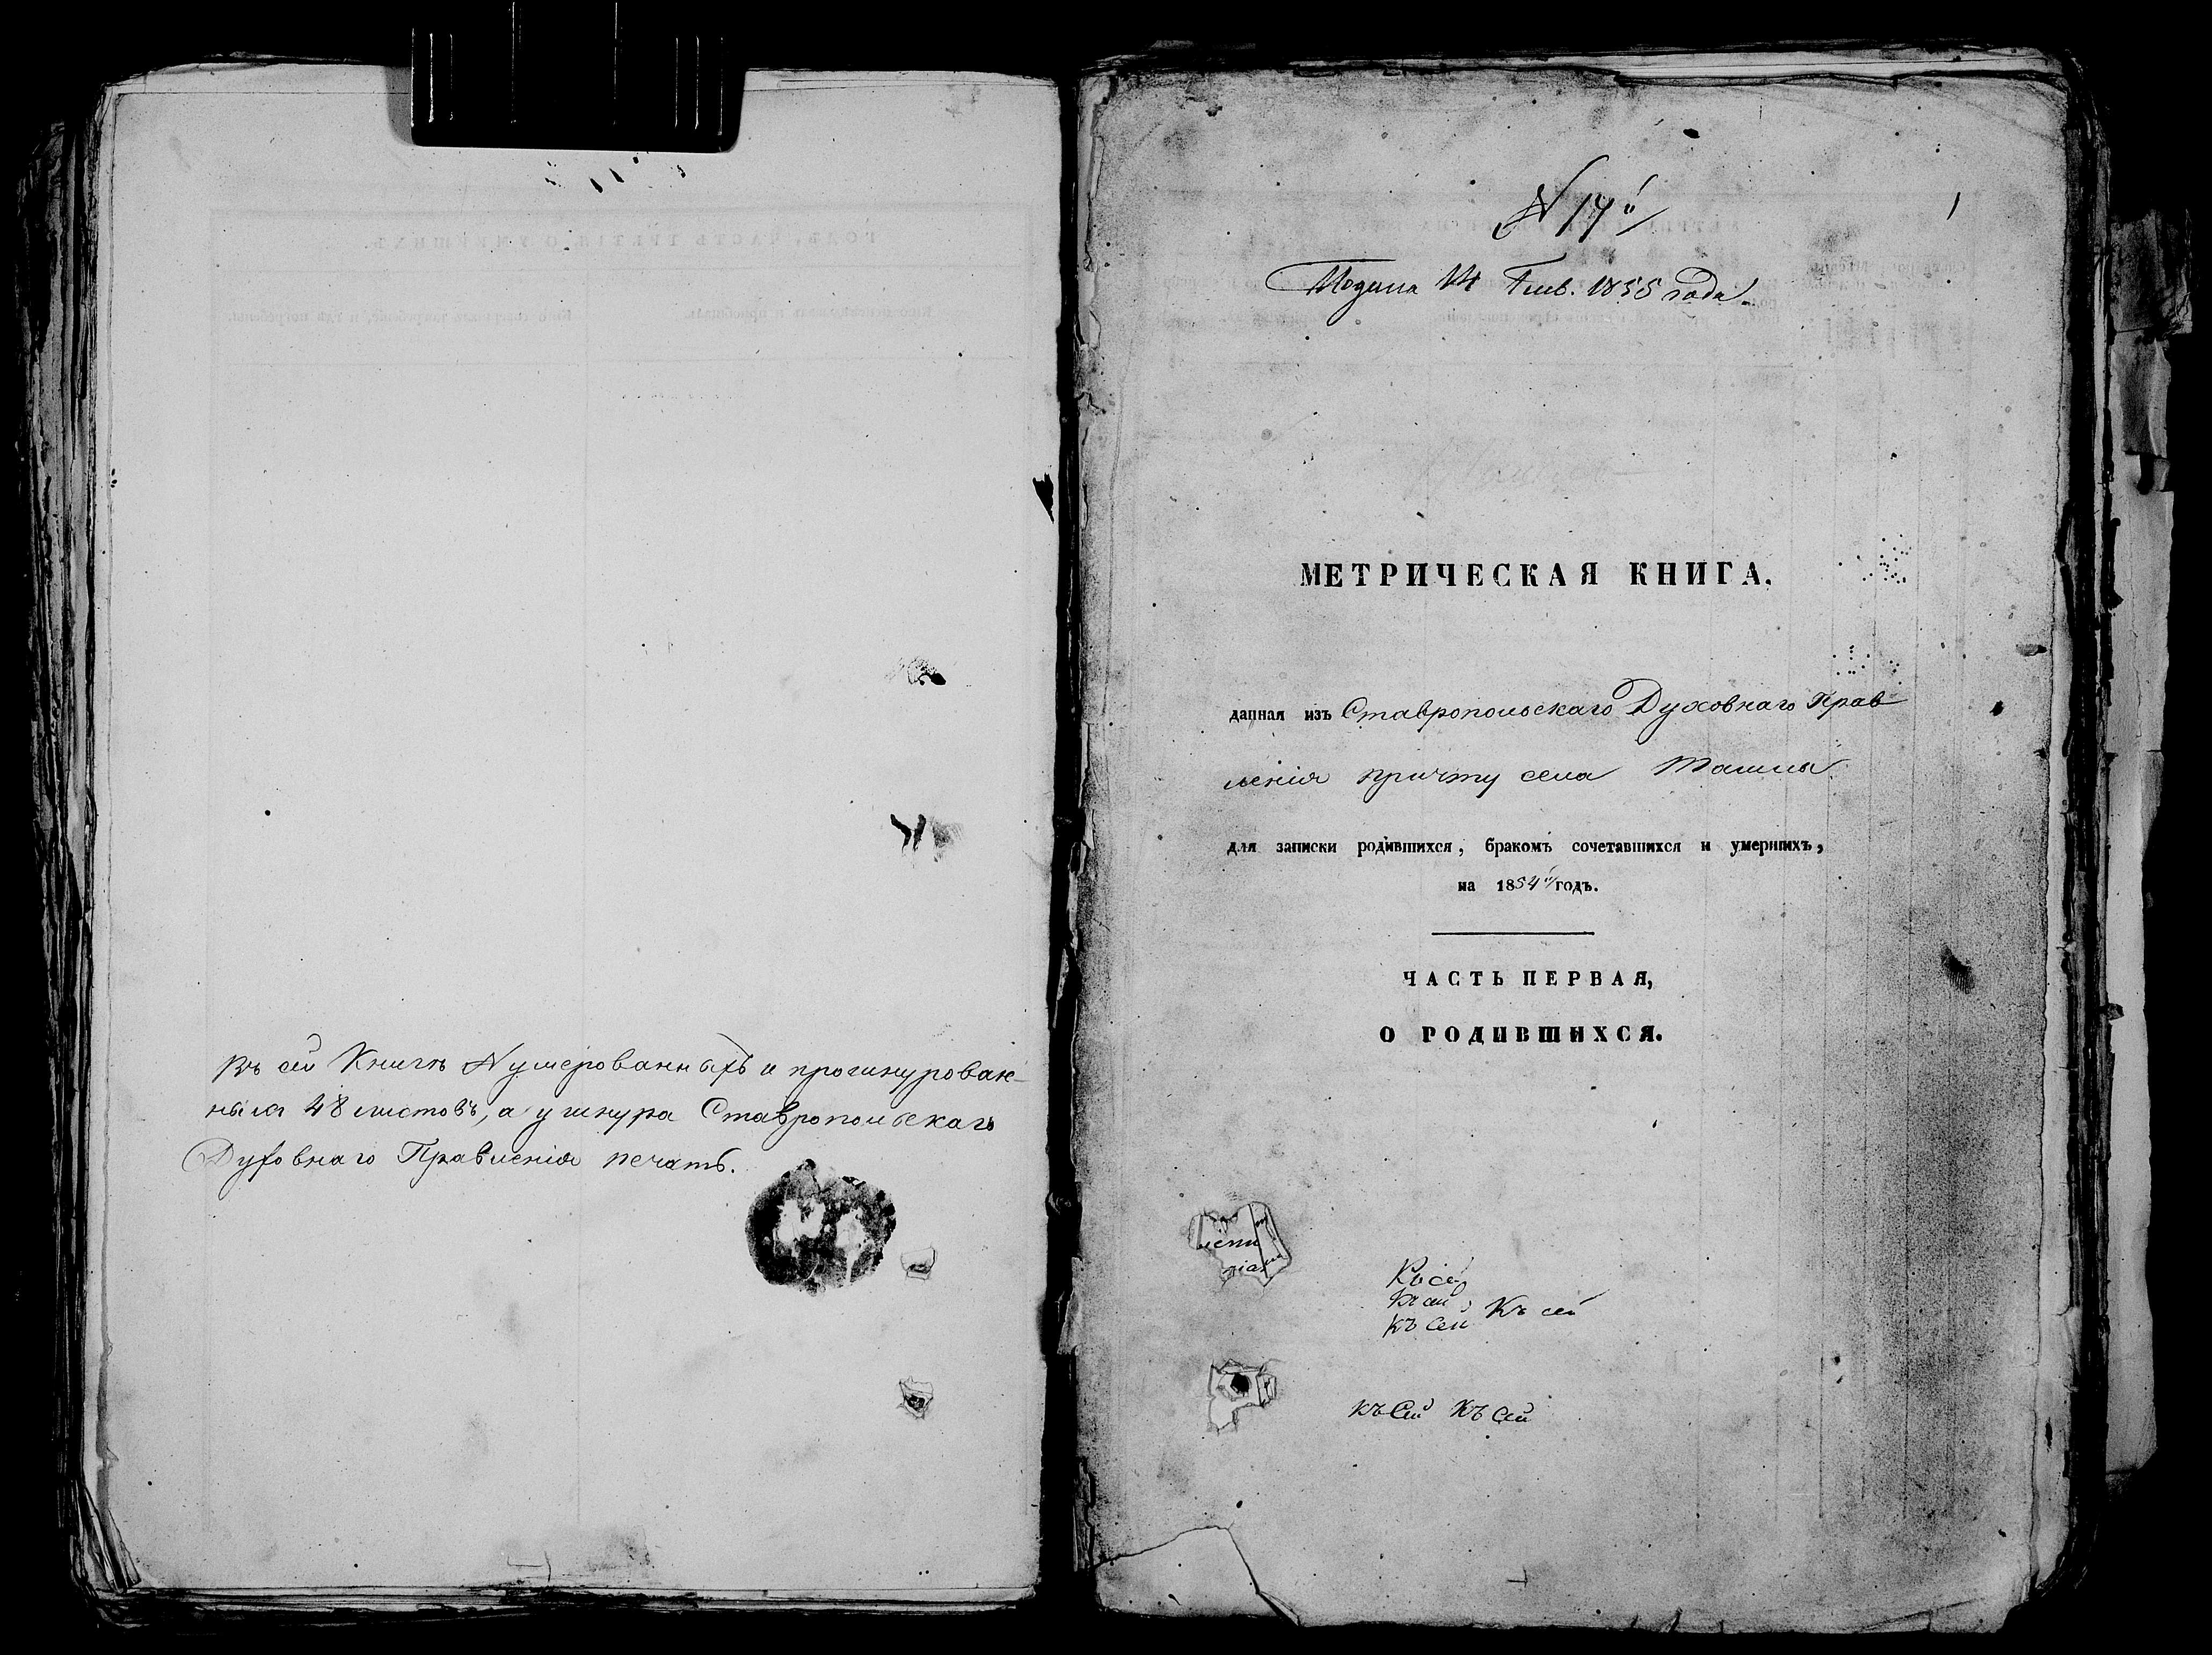 Въ сей Книгѣ Нумерованныхъ и прошнурован-
ныхъ 48 листовъ, а у шнура Ставропольскаго
Духовнаго Правленія печать.
1
Подана 14 Генв. 1855 года.
МЕТРИЧЕСКАЯ КНИГА,
данная изъ Ставропольскаго Духовнаго Прав
ленія причту села Ташлы
для записки родившихся, бракомъ сочетавшихся и умершихъ,
на 1854й годъ.
ЧАСТЬ ПЕРВАЯ,
О РОДИВШИХСЯ.
Къ сей
Къ сей
Къ сей Къ сей
Къ Сей Къ Сей